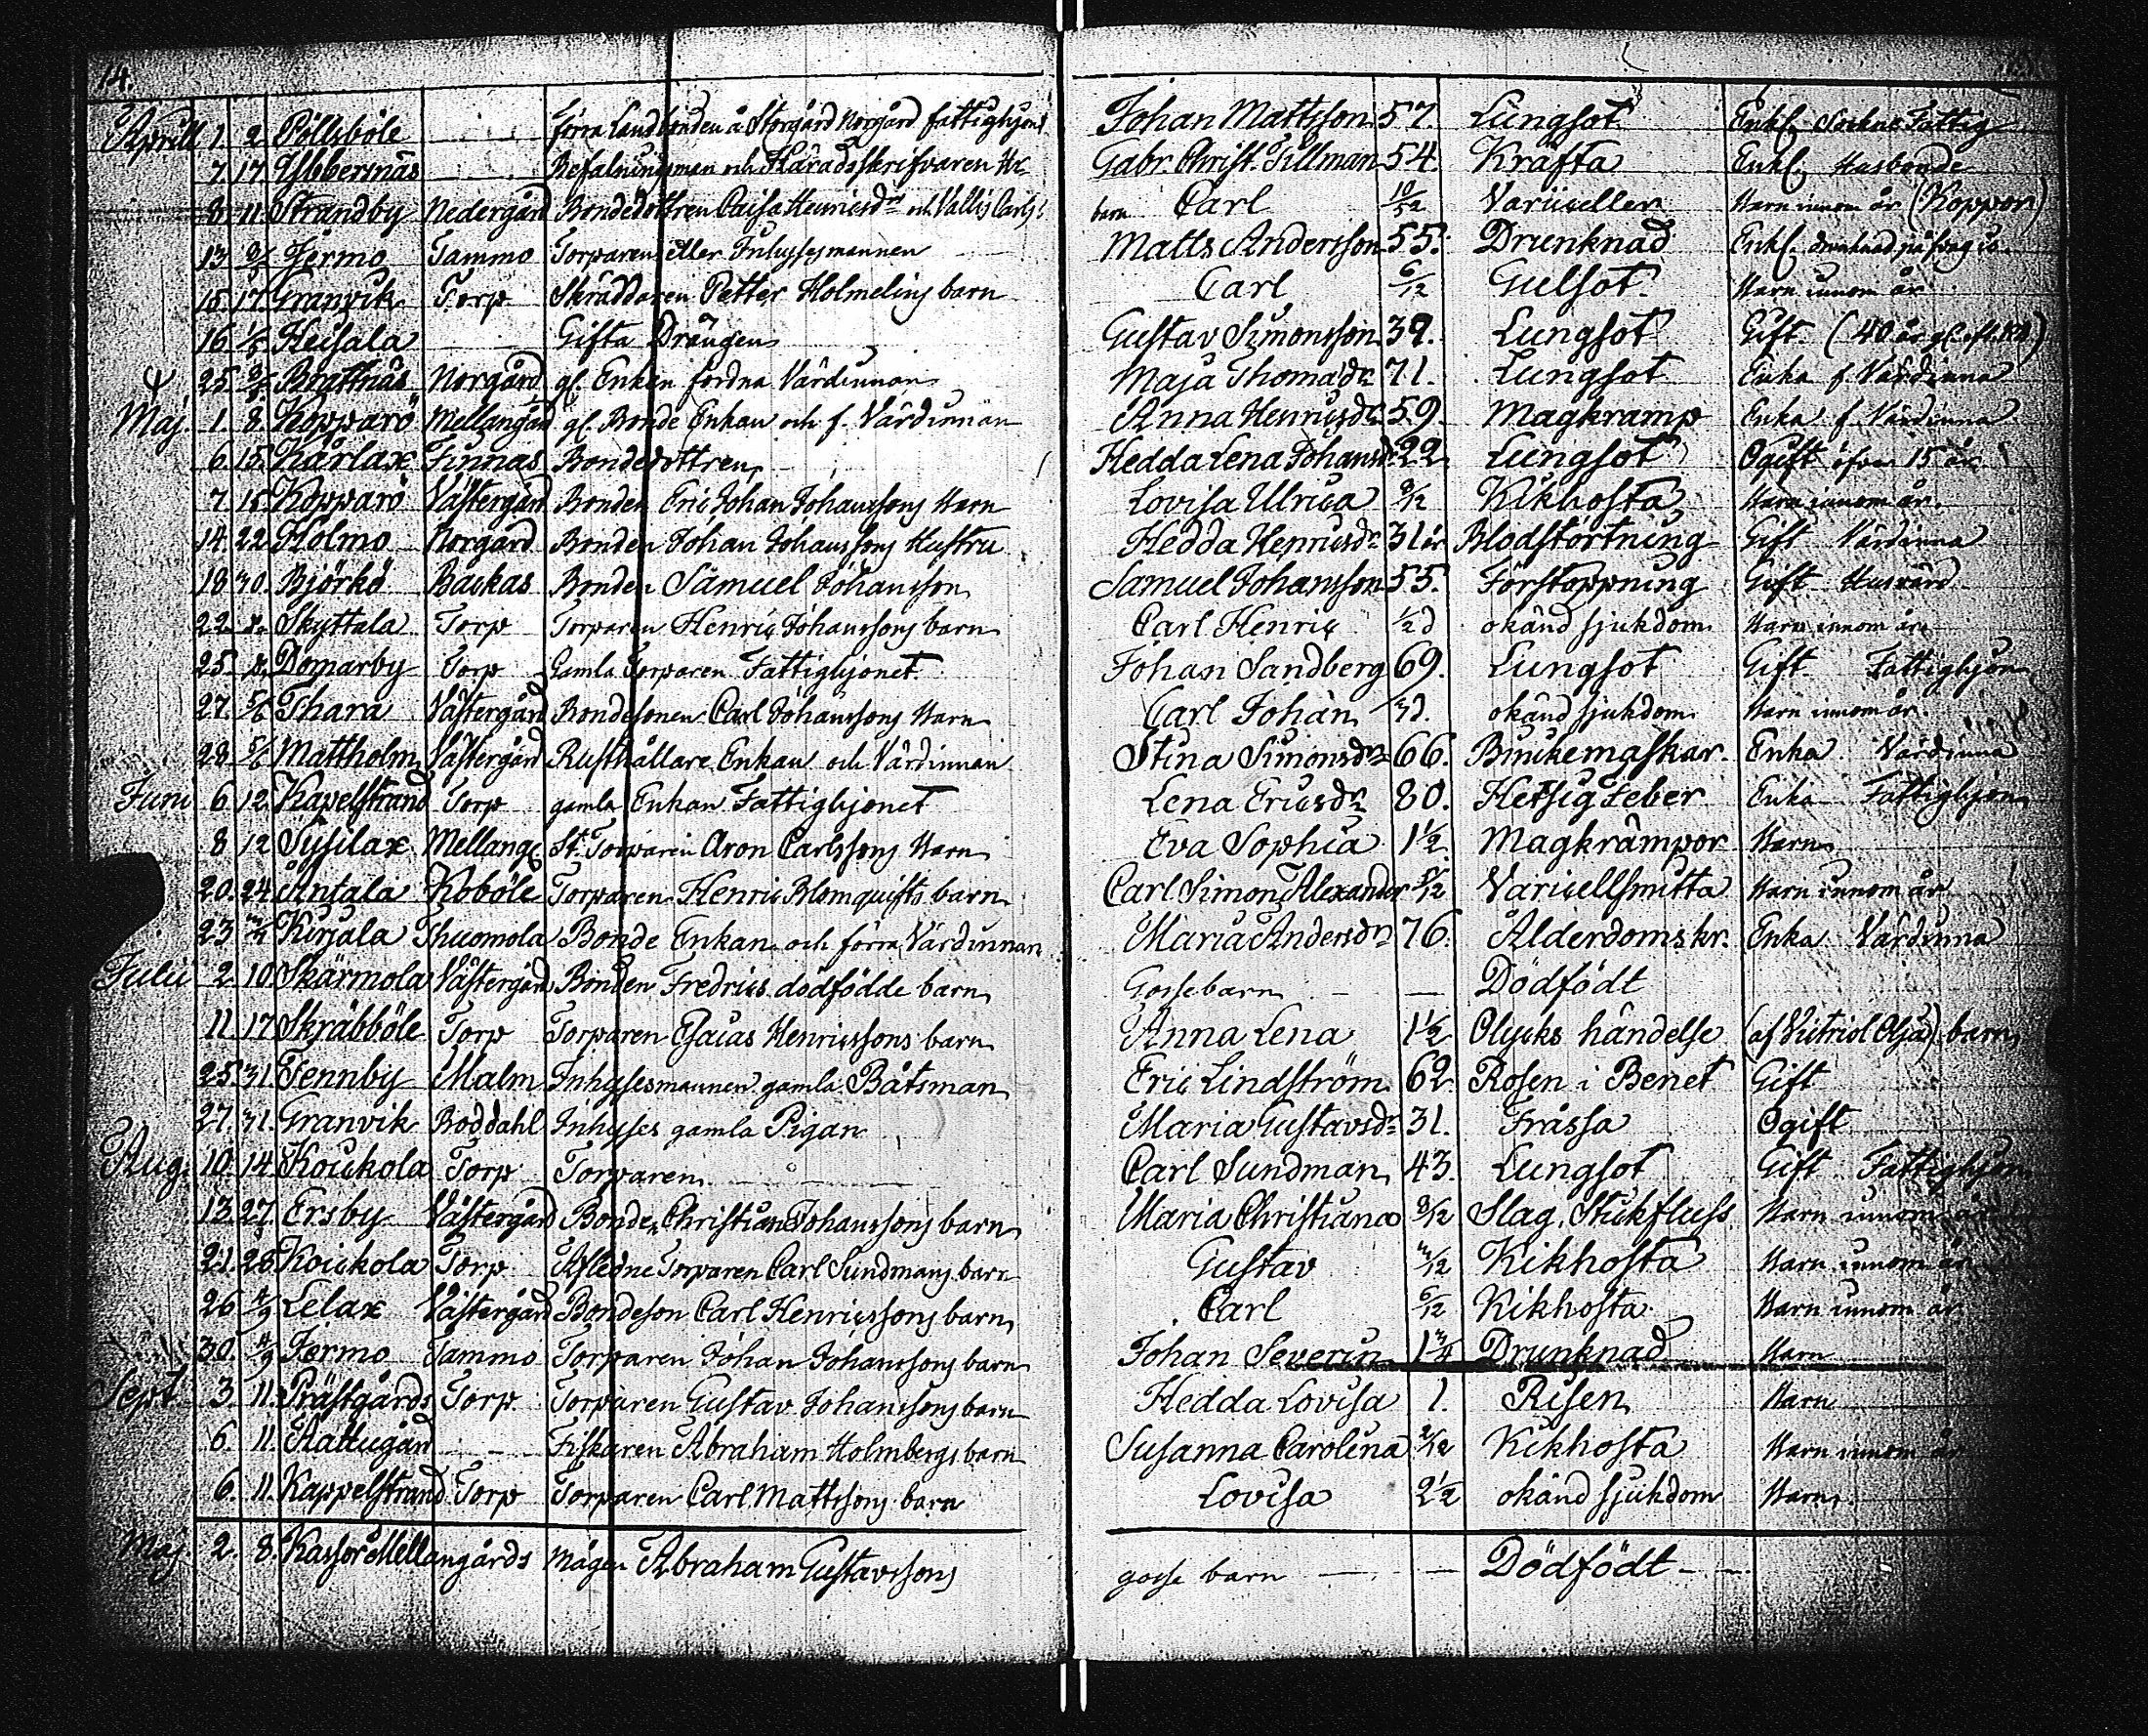 14.
Aprill 1. 2. Pöllsböle förra Landbonden å Storgård Norgård fattighjon Johan Mattsson 57 Lungsot Enkl. Sockne Fattig
7. 17 Ybbersnäs Befalningsman och Häradsskrifvaren Hr Gabr. Christ. Tillman 54. Kräfta Enkl. Husbonde
8. 11. Strandby Nedergård Bondedottren Caisa Henricsdr och Vallis Carls barn Carl 10/12 Varicellen Barn innom år (Koppor)
13 Jermo Tammo Torparen eller Inhysesmannen Matts Andersson 55. Drunknad Enkl. drunknad på svag is
15. 17. Granvik Torp Skräddaren Petter Holmelins barn Carl 6/12 Gulsot Barn innom år
16 1/5 Heisala Gifta Drängen Gustav Simonsson 39. Lungsot Gift (40 år
25. Brattnäs Norgård gl. Enkan fordna Värdinnan Maja Thomadr 71. Lungsot Enka f. Värdinna
Maj. 1. 8. Kopparö Mellangård gl. Bonde Enkan och f. Värdinnan Anna Henricsdr 59. Magkramp Enka f. Värdinna
6. 15. Kårlax Finnas Bondedottren Hedda Lena Johansdr 22. Lungsot Ogift öfver 15 år
7. 15. Kopparö Västergård Bonden Eric Johan Johanssons Barn Lovisa Ulrica 9/12 Kikhosta Barn innom år.
14. 22 Holmo Norgård Bonden Johan Johanssons Hustru Hedda Henricsdr 31 år Blodstörtning Gift Värdinna
18 30. Björkö Backas Bonden Samuel Johansson Samuel Johansson 55. Förstoppning Gift Husvärd
22. Skyttala Torp Torparen Henric Johanssons barn Carl Henric 1/2 d okänd sjukdom Barn innom år
25. Domarby Torp Gamla Torparen Fattighjonet Johan Sandberg 69. Lungsot Gift Fattighjon
27. 5/6 Thara Västergård Bondesonen Carl Johanssons Barn Carl Johan okänd sjukdom Barn innom år.
28 5/6 Mattholm Västergård Rusthållare Enkan och Värdinnan Stina Simonsdr 66. Binikemaskar. Enka Värdinna
Juni 6 12. Kapelstrand Torp gamla Enkan Fattighjonet Lena Ericsdr 80. Hetsig Feber Enka Fattighjon
8 12 Sysilax Mellang St. Torparen Aron Carlssons Barn Eva Sophia 1 1/2 Magkrämpor Barn
20. 24. Antala Koböle Torparen Henric Blomquists barn Carl Simon Alexander 5/12 Varicellsmitta Barn innom år.
23 Kirjala Thuomola Bonde Enkan och förra Värdinnan Maria Andersdr 76. Ålderdomskr. Enka Värdinna
Julii 2. 10. Skärmola Västergård Bonden Fredrics dödfödde barn Gossebarn — — Dödfödt
11. 17 Skräbböle Torp Torparen Esaias Henricssons barn Anna Lena 1 1/2 Olycks händelse (af Vitriol Olja) barn
25. 31. Tennby Malm Inhysesmannen gamla Båtsman Eric Lindström 62. Rosen i Benet Gift
27. 31. Granvik Boddahl Inhyses gamla Pigan Maria Gustavsdr 31. Frassa Ogift
Aug. 10. 14. Kouckola Torp Torparen Carl Sundman 43. Lungsot Gift Fattighjon
13. 27. Ersby Västergård Bonden Christian Johanssons barn Maria Christiana 9/12 Slag. Stickfluss Barn innom år
21. 28. Koickola Torp Aflidne Torparen Carl Sundmans barn Gustav 3/12 Kikhosta Barn innom år
26 4/9 Lelax Västergård Bondeson Carl Henricssons barn Carl 6/12 Kikhosta Barn innom år
30. 4/9 Jermo Tammo Torparen Johan Johanssons barn Johan Severin 1 3/4 Drunknad Barn
Sept. 3. 11. Prästgårds Torp Torparen Gustav Johanssons barn Hedda Lovisa 1. Risen Barn
6. 11. Hattugård Fiskaren Abraham Holmbergs barn Susanna Carolina 2/12 Kikhosta Barn innom år
6. 11. Kappelstrand Torp Torparen Carl Mattssons barn Lovisa 2 1/2 okänd sjukdom Barn.
Maj 2. 8. Kassor Mellangårds Mågen Abraham Gustavssons gosse barn — — Dödfödt —